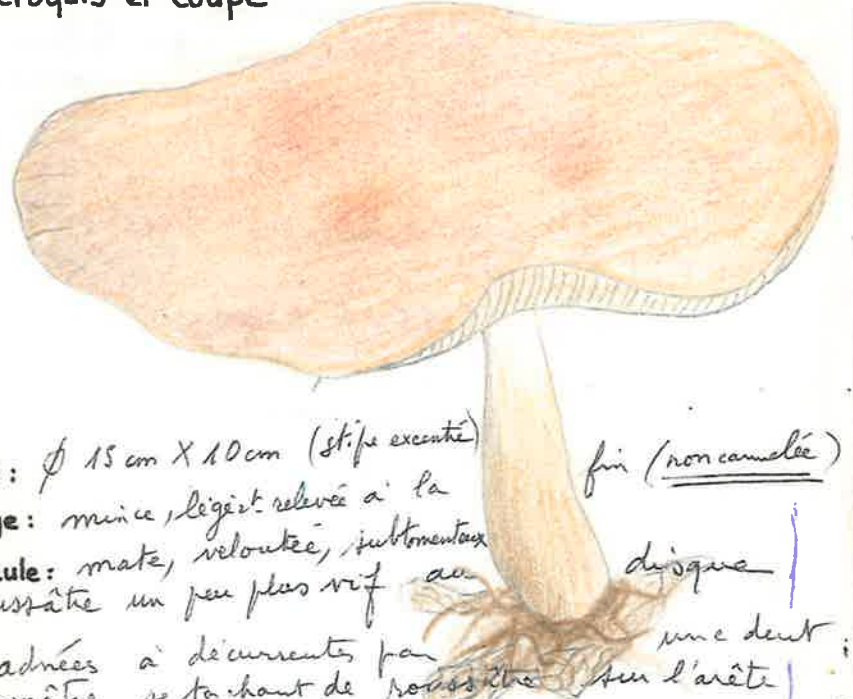 croquis et coupe
: ϕ 15 cm X 10 cm (stipe excentré)
ge : mince, légèrt relevée à la fin (non cannelée)
cule : mate, veloutée, subtomenteux
ussâtre un peu plus vif au disque
adnées à décurrentes par une dent ;
nâtre se tachant de roussâtre sur l'arête